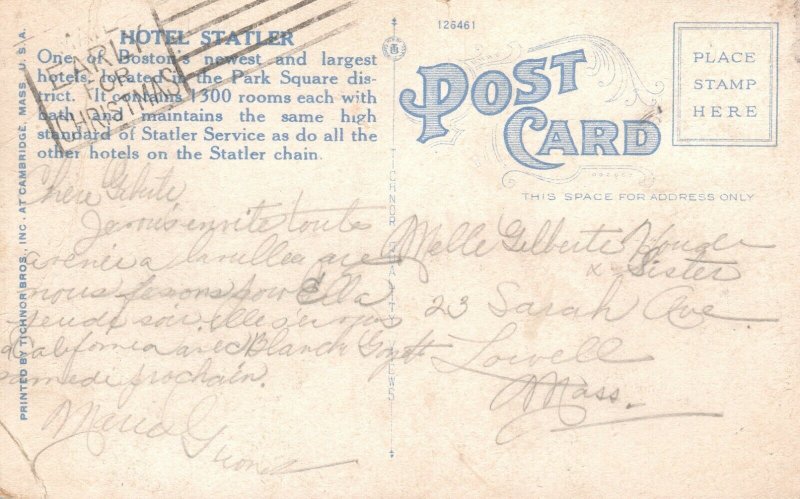 HOTEL STATLER
One of Boston's newest and largest
hotels, located in the Park Square dis-
trict. It contains 1300 rooms each with
bath and maintains the same high
standard of Statler Service as do all the
other hotels on the Statler chain.
EARLY
FOR
CHRISTMAS
126461
POST
CARD
PLACE
STAMP
HERE
THIS SPACE FOR ADDRESS ONLY
PRINTED BY TICHNOR BROS., INC. AT CAMBRIDGE, MASS., U. S. A.
TICHNOR QUALITY VIEWS
Chere Gilberte
Je vous invite toute
a
nous fesons pour Ella
jeudi soir elle s'en vas
a California avec Blanch
samedi prochain.
Maria
Melle Gilberte Houde
x Sister
23 Sarah Ave
Lowell
Mass.